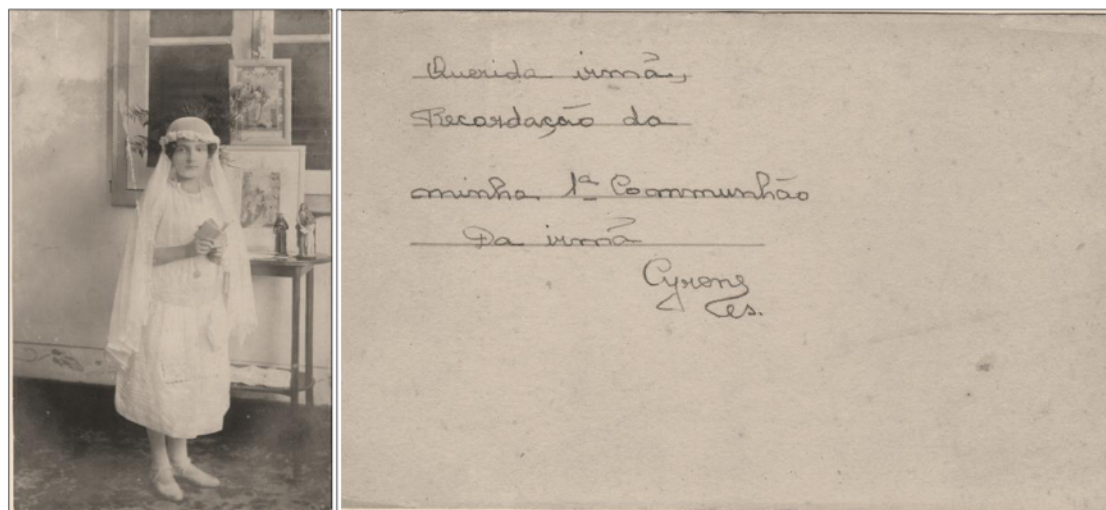 Querida irmã,
Recordação da
minha 1ª Communhão
Da irmã
Cyrene